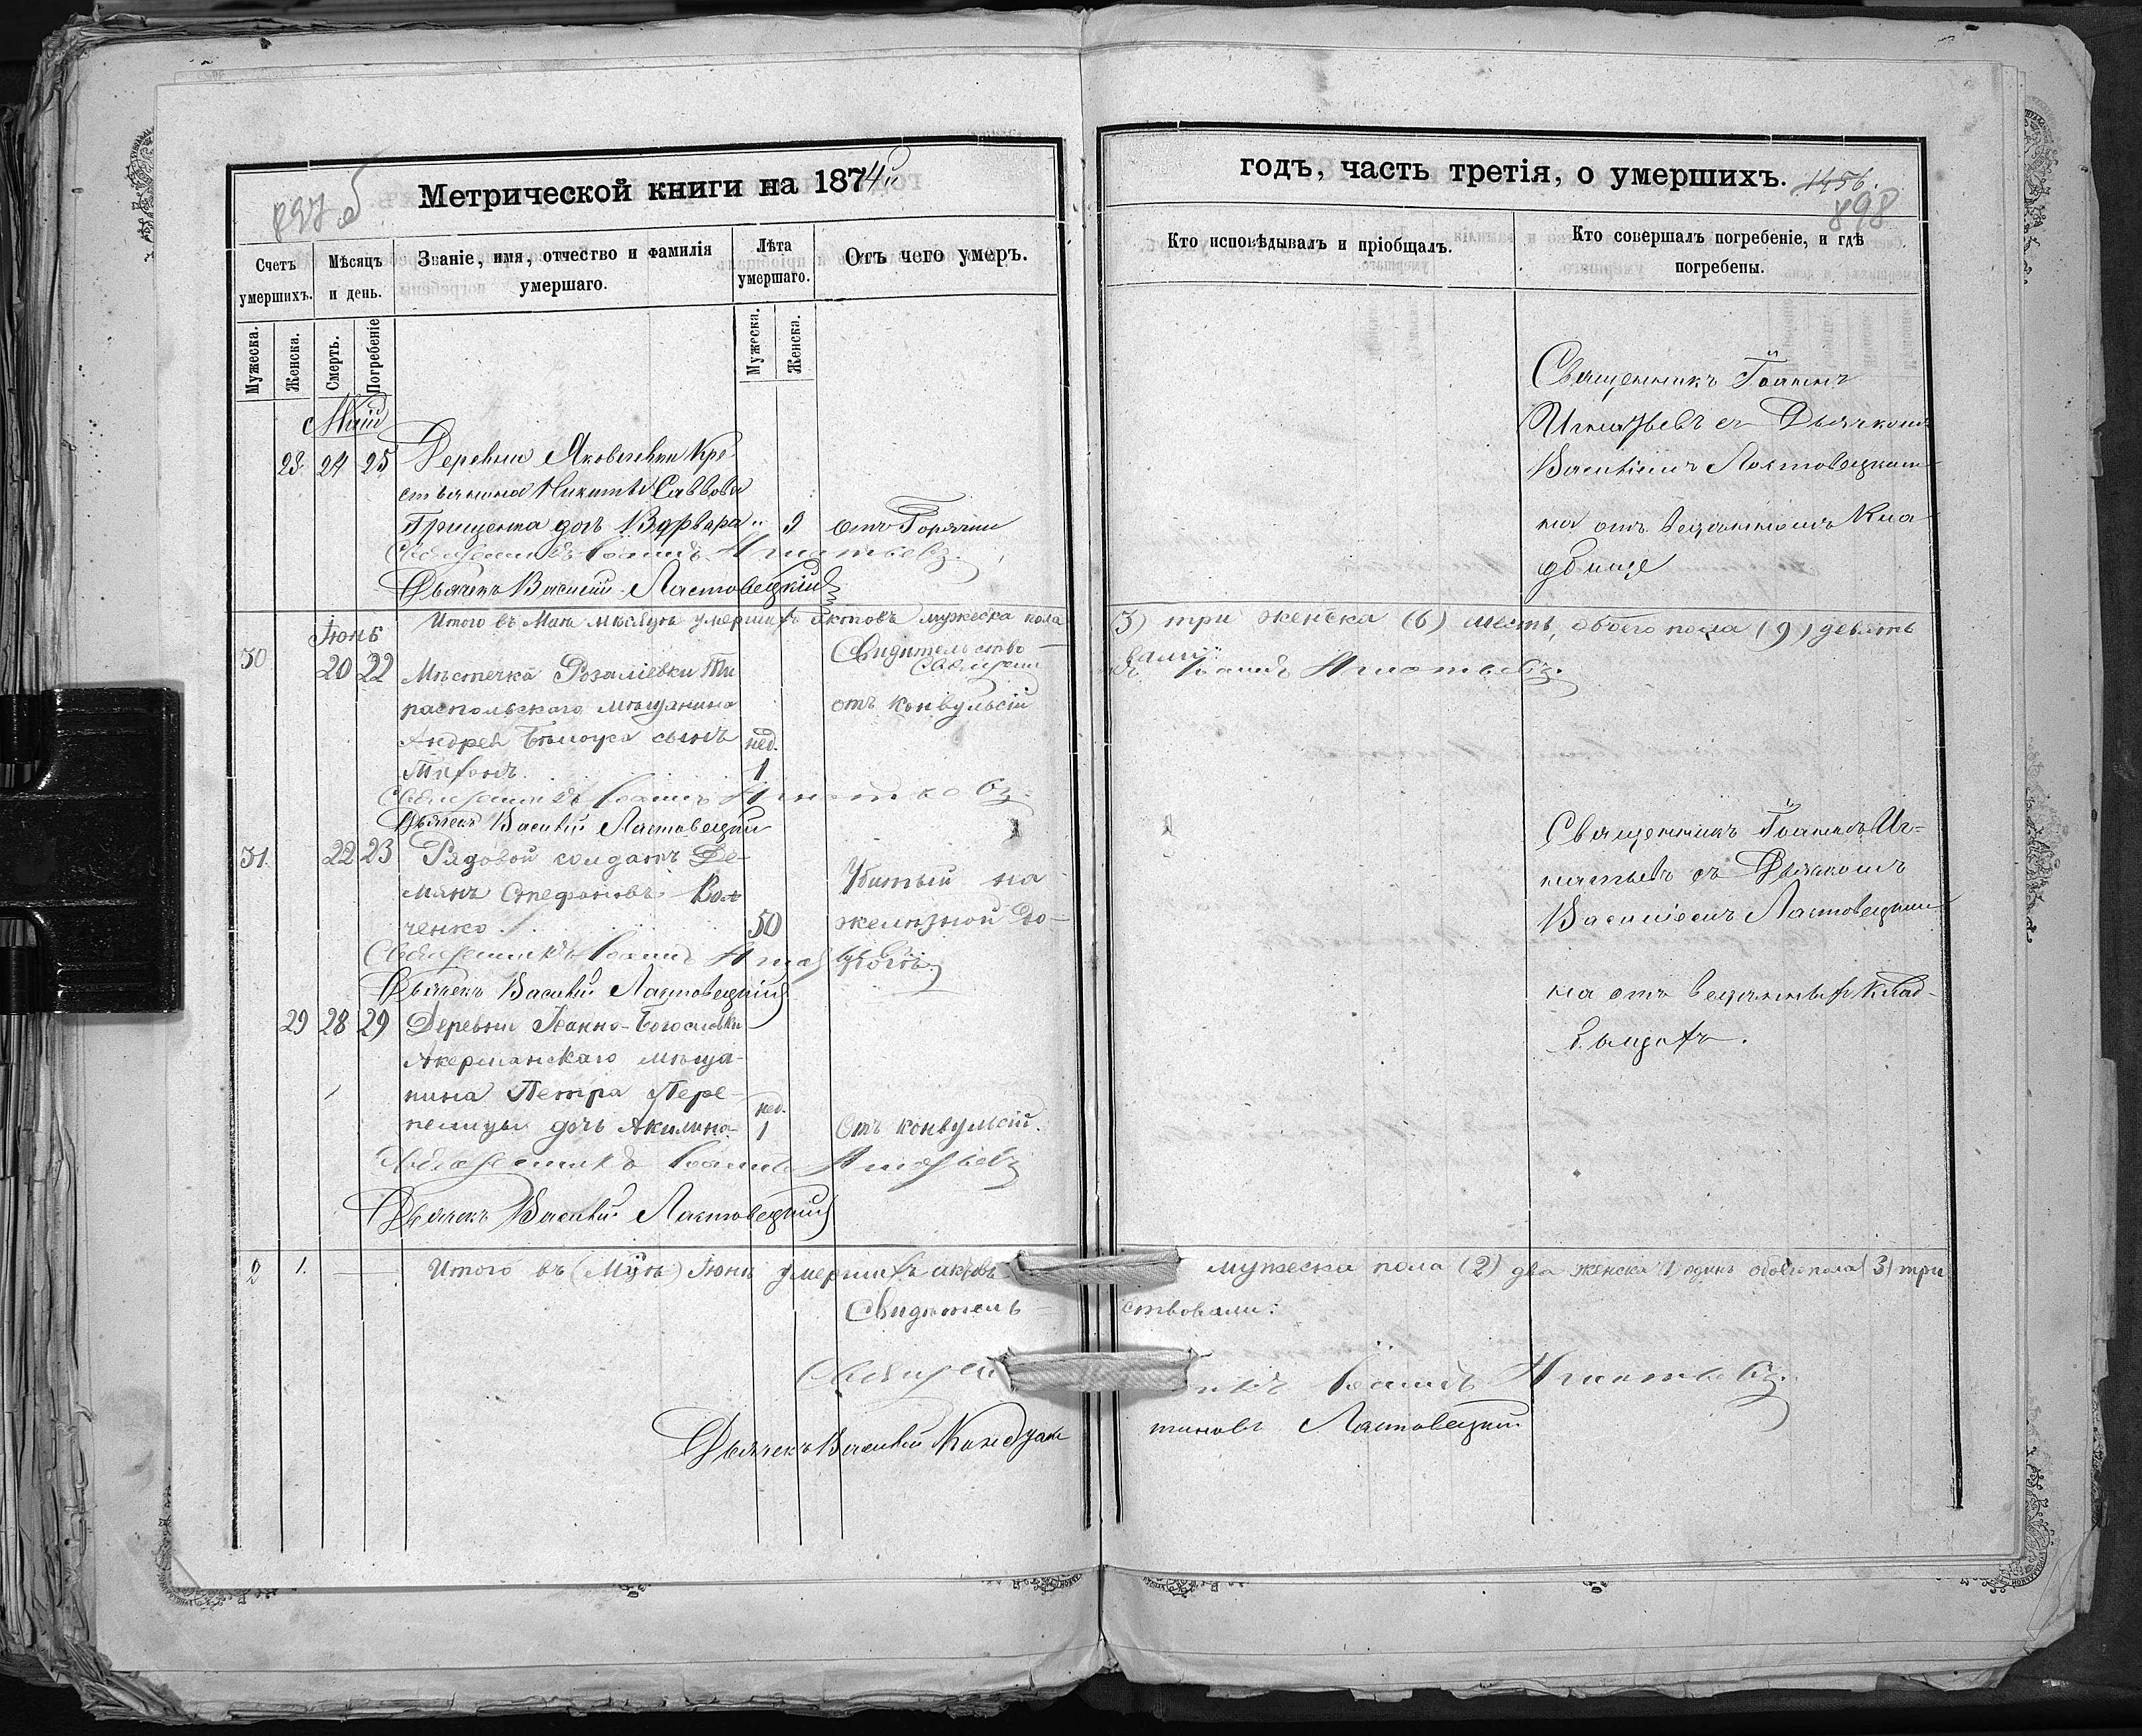 Метрической книги на 1874й
Счетъ умершихъ.
Мѣсяцъ и день.
Званіе, имя, отчество и фамилія умершаго.
Лѣта умершаго.
Отъ чего умеръ.
Мужеска.
Женска.
Смерть.
Погребеніе
Мужеска.
Женска.
Май
28 24 25 Деревни Яковлевки Кре-
стьянина Никиты Саввова
Грищенка дочь Варвара 9 отъ Горячки
Священникъ Іоаннъ Игнатьевъ.
Дьячекъ Василій Ластовецкій
Итого въ Маѣ мѣсяцѣ умершихъ актовъ мужеска пола
Іюнь Свидительство-
30 20 22 Мѣстечка Розаліевки Ти
распольскаго мѣщанина отъ конвульсій
Андрея Бѣлоуса сынъ нед.
Тихонъ. 1
Священникъ Іоаннъ Игнатьевъ.
Дьячекъ Василій Ластовецкій
31. 22 23 Рядовой солдатъ Де-
мянъ Стефановъ Убитый на
ченко 50 желѣзной до-
Священникъ Іоаннъ
Дьячекъ Василій Ластовецкій
29 28 29 Деревни Іоанно-Богословки
Акерманскаго мѣща-
нина Петра Пере- нед.
пелицы дочь Акилина 1 Отъ конвульсій.
Священникъ Іоаннъ Игнатьевъ
Дьячекъ Василій Ластовецкій
2 1. Итого въ Іюнѣ умершихъ актовъ
Свидѣтель=
Священ
Дьячекъ Василій
годъ, часть третія, о умершихъ. 1456.
898
Кто исповѣдывалъ и пріобщалъ.
Кто совершалъ погребеніе, и гдѣ погребены.
Священникъ Іоаннъ
Игнатьевъ съ Дьячкомъ
Василіемъ Ластовецкимъ
на отъ веденномъ Кла
дбище
3) три женска (6) шесть, обоего пола (9) девять
вали:
Іоаннъ Игнатьевъ.
Священникъ Іоаннъ Иг=
натьевъ съ Дьячкомъ
Василіемъ Ластовецкимъ
на отъ веденныхъ Клад-
бищахъ.
мужеска пола (2) два женска (1) одинъ обоего пола (3) три
ствовали:
никъ Іоаннъ Игнатьевъ.
тиновъ Ластовецкій